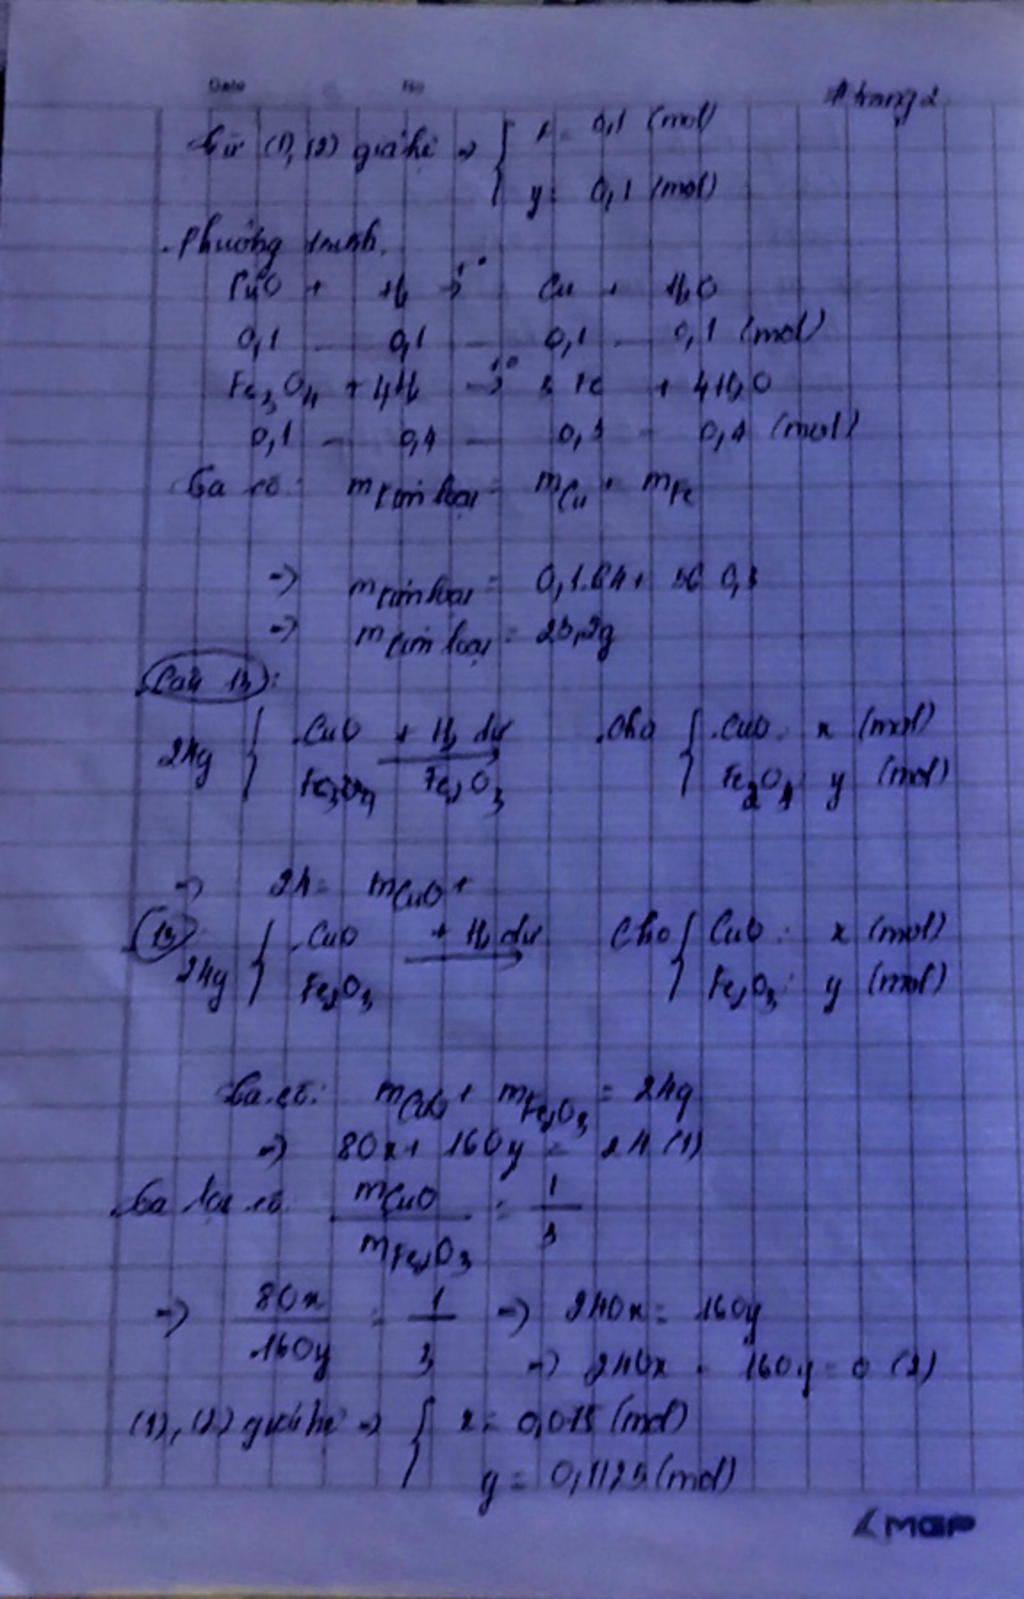 Date No
trang 2
Từ (1), (2) giải hệ => { x = 0,1 (mol)
y = 0,1 (mol)
. Phương trình.
CuO + H₂ →t° Cu + H₂O
0,1 - 0,1 - 0,1 - 0,1 (mol)
Fe₃O₄ + 4H₂ →t° 3Fe + 4H₂O
0,1 - 0,4 - 0,3 - 0,4 (mol)
Ta có: m kim loại = m Cu + m Fe
=> m kim loại = 0,1.64 + 56.0,3
=> m kim loại = 23,2g
Câu 13:
24g { CuO + H₂ dư .Cho { .CuO: x (mol)
Fe₂O₃ Fe₂O₃ y (mol)
=> 24 = mCuO +
(13) 24g { .CuO + H₂ dư Cho { CuO: x (mol)
Fe₂O₃ Fe₂O₃: y (mol)
Ta có: mCuO + mFe₂O₃ = 24g
=> 80x + 160y = 24 (1)
Ta lại có: mCuO / mFe₂O₃ = 1/3
=> 80x / 160y = 1/3 => 240x = 160y
=> 240x - 160y = 0 (2)
(1), (2) giải hệ => { x = 0,075 (mol)
y = 0,1125 (mol)
MGP